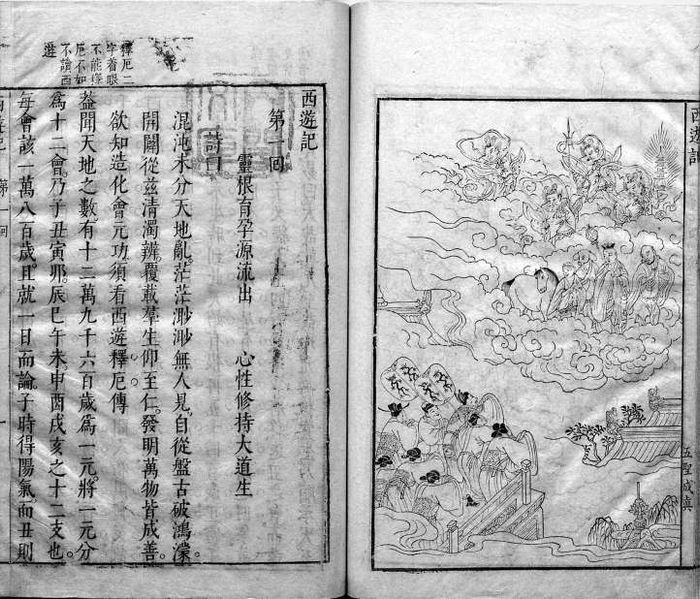 西遊記
五聖成真
西遊記
第一回
靈根育孕源流出　心性修持大道生
詩曰
混沌未分天地亂。茫茫渺渺無人見。自從盤古破鴻濛。
開闢從茲清濁辨。覆載羣生仰至仁。發明萬物皆成善。
欲知造化會元功。須看西遊釋厄傳
蓋聞天地之數有十二萬九千六百歲爲一元。將一元分
爲十二會。乃子丑寅卯。辰巳午未。申酉戌亥之十二支也。
每會該一萬八百歲。且就一日而論。子時得陽氣。而丑則
釋厄二
字着眼
不能釋
厄不如
不讀西
遊
西遊記　第一回　一